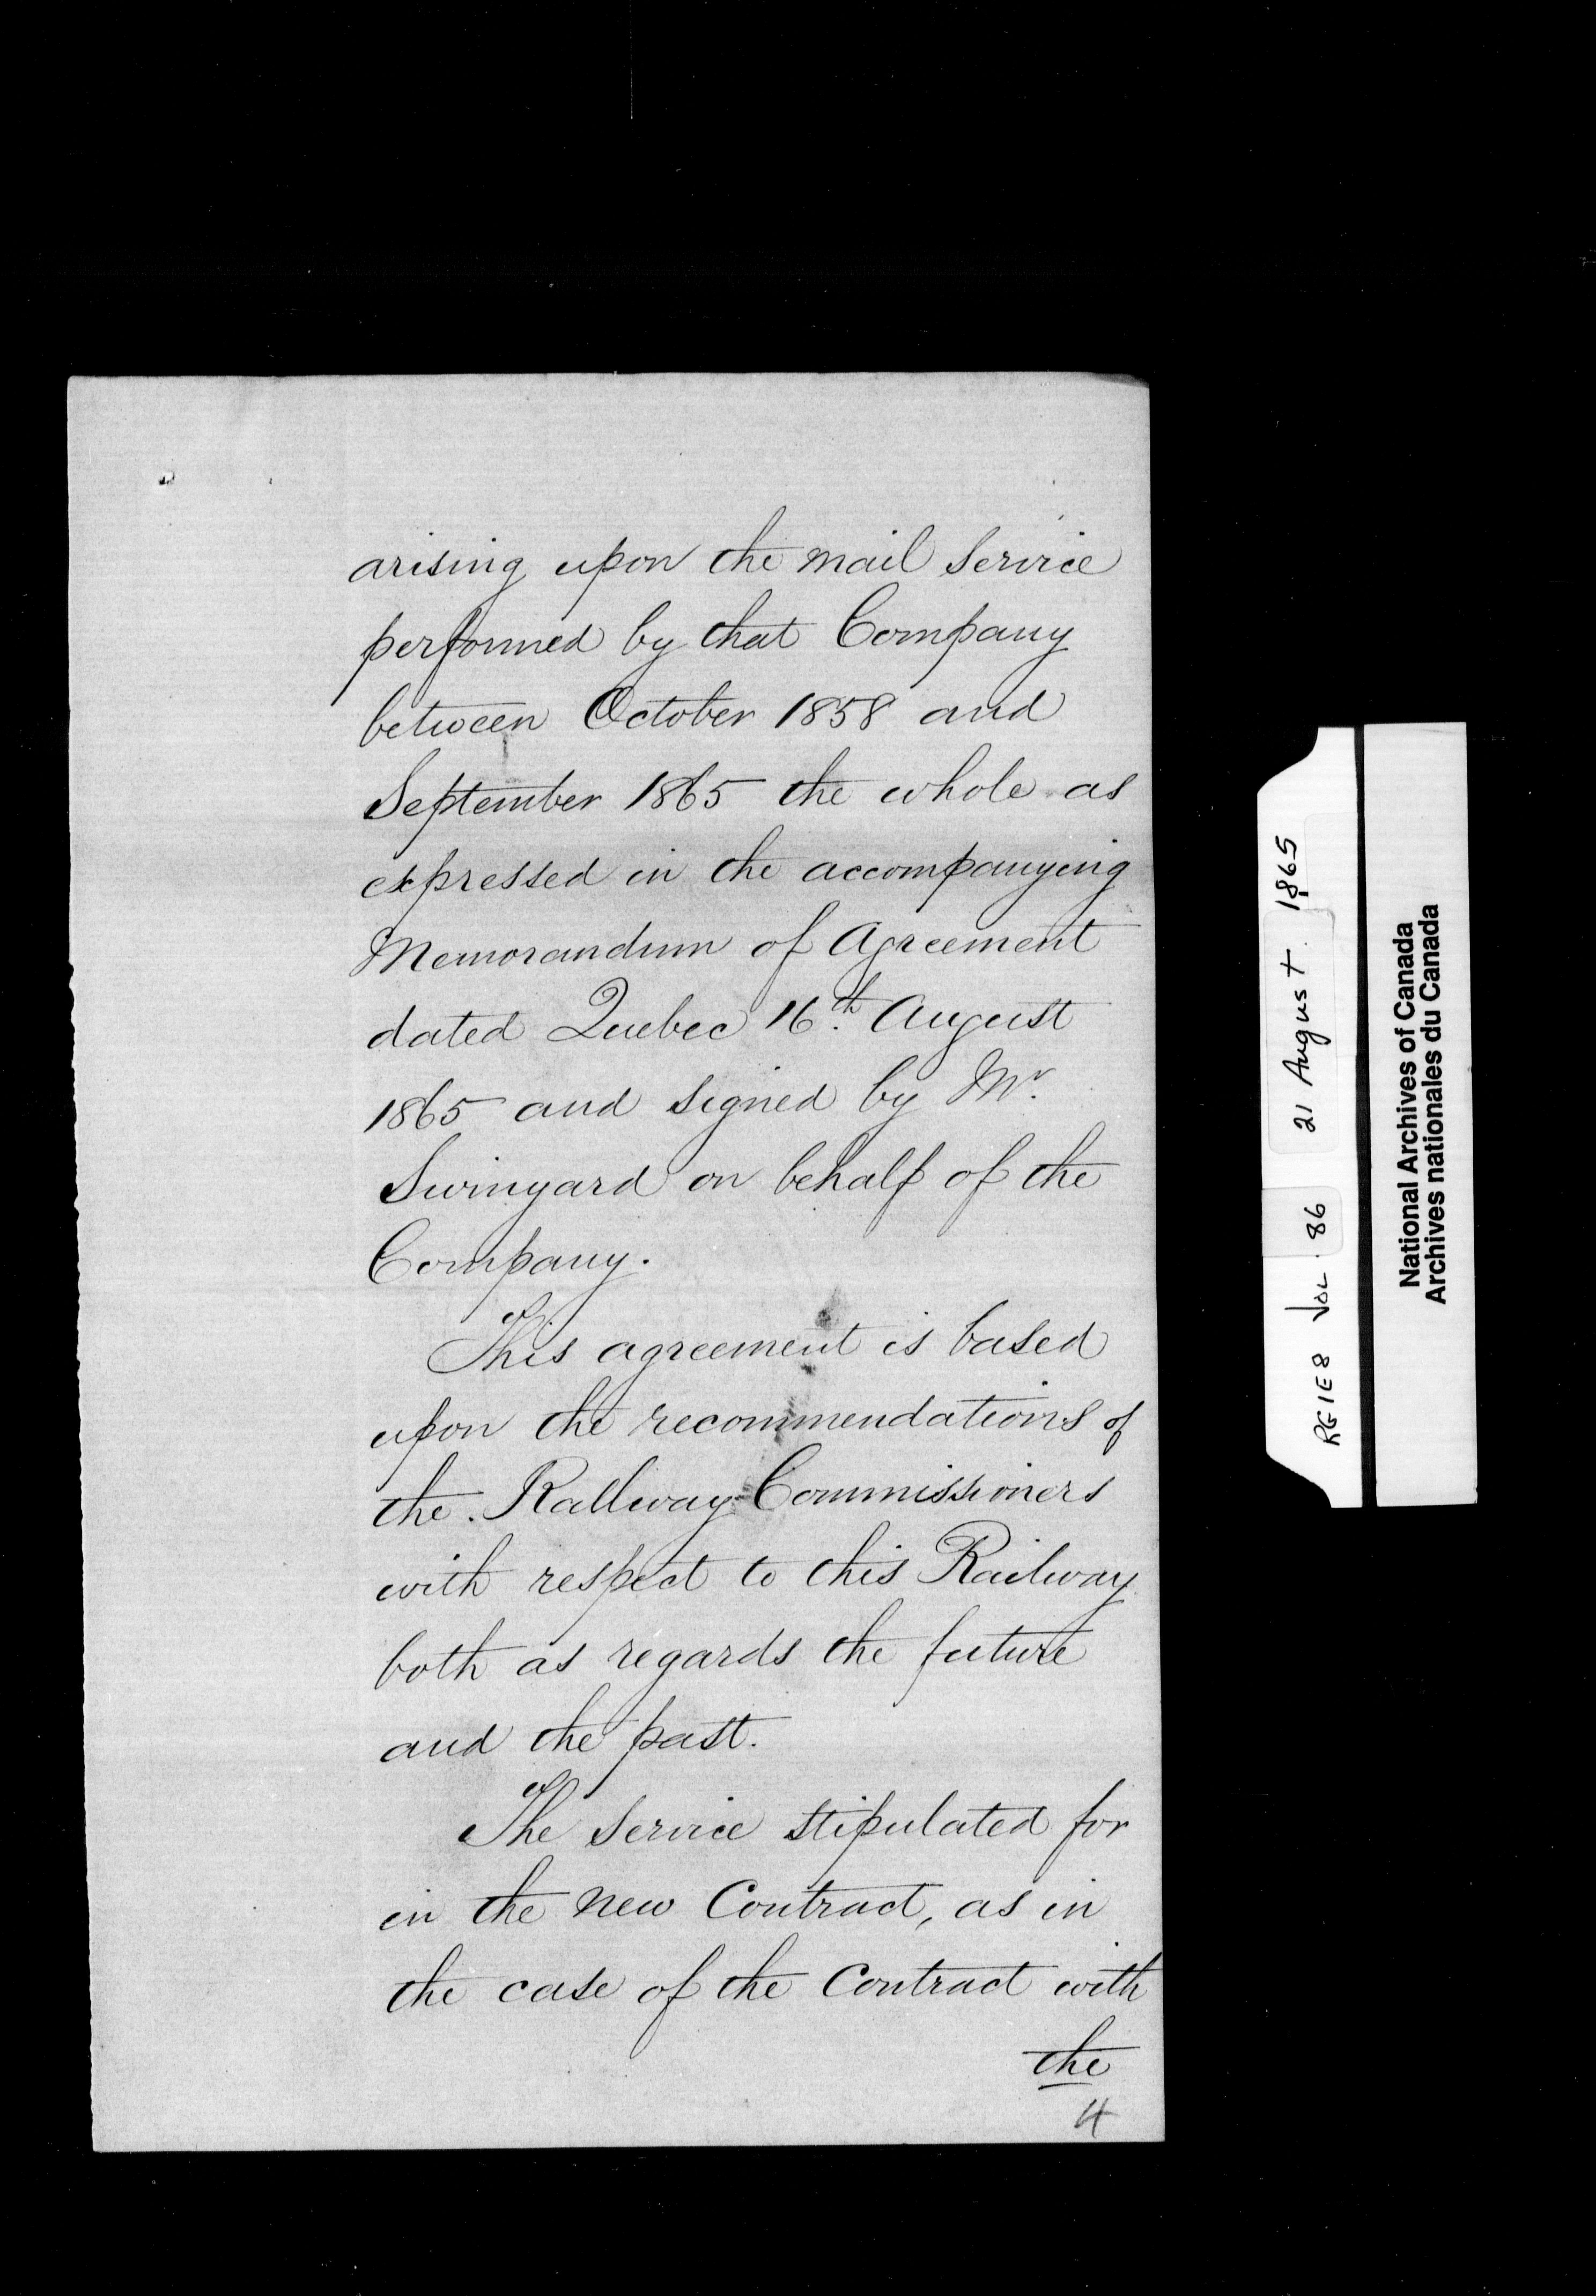 arising upon the mail service
performed by that Company
between October 1858 and
September 1865 the whole as
expressed in the accompanying
Memorandum of Agreement
dated Quebec 16th. August
1865 and signed by Mr.
Swinyard on behalf of the
Company.
This agreement is based
upon the recommendations of
the Railway Commissioners
with respect to this Railway
both as regards the future
and the past.
The service stipulated for
in the new Contract, as in
the case of the Contract with
the
4
RG1E8 VOL. 86 21 August. 1865
National Archives of Canada
Archives nationales du Canada